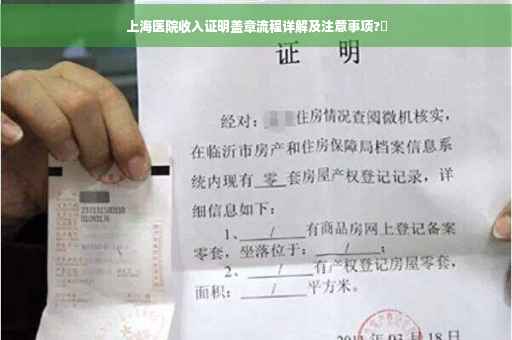 上海医院收入证明盖章流程详解及注意事项?
证 明
经对：住房情况查阅微机核实，
在临沂市房产和住房保障局档案信息系
统内现有 零 套房屋产权登记记录，详
细信息如下：
1、 / 有商品房网上登记备案
零套，坐落位于： / ；
2、 / 有产权登记房屋零套，
面积： / 平方米。
03 月 18 日